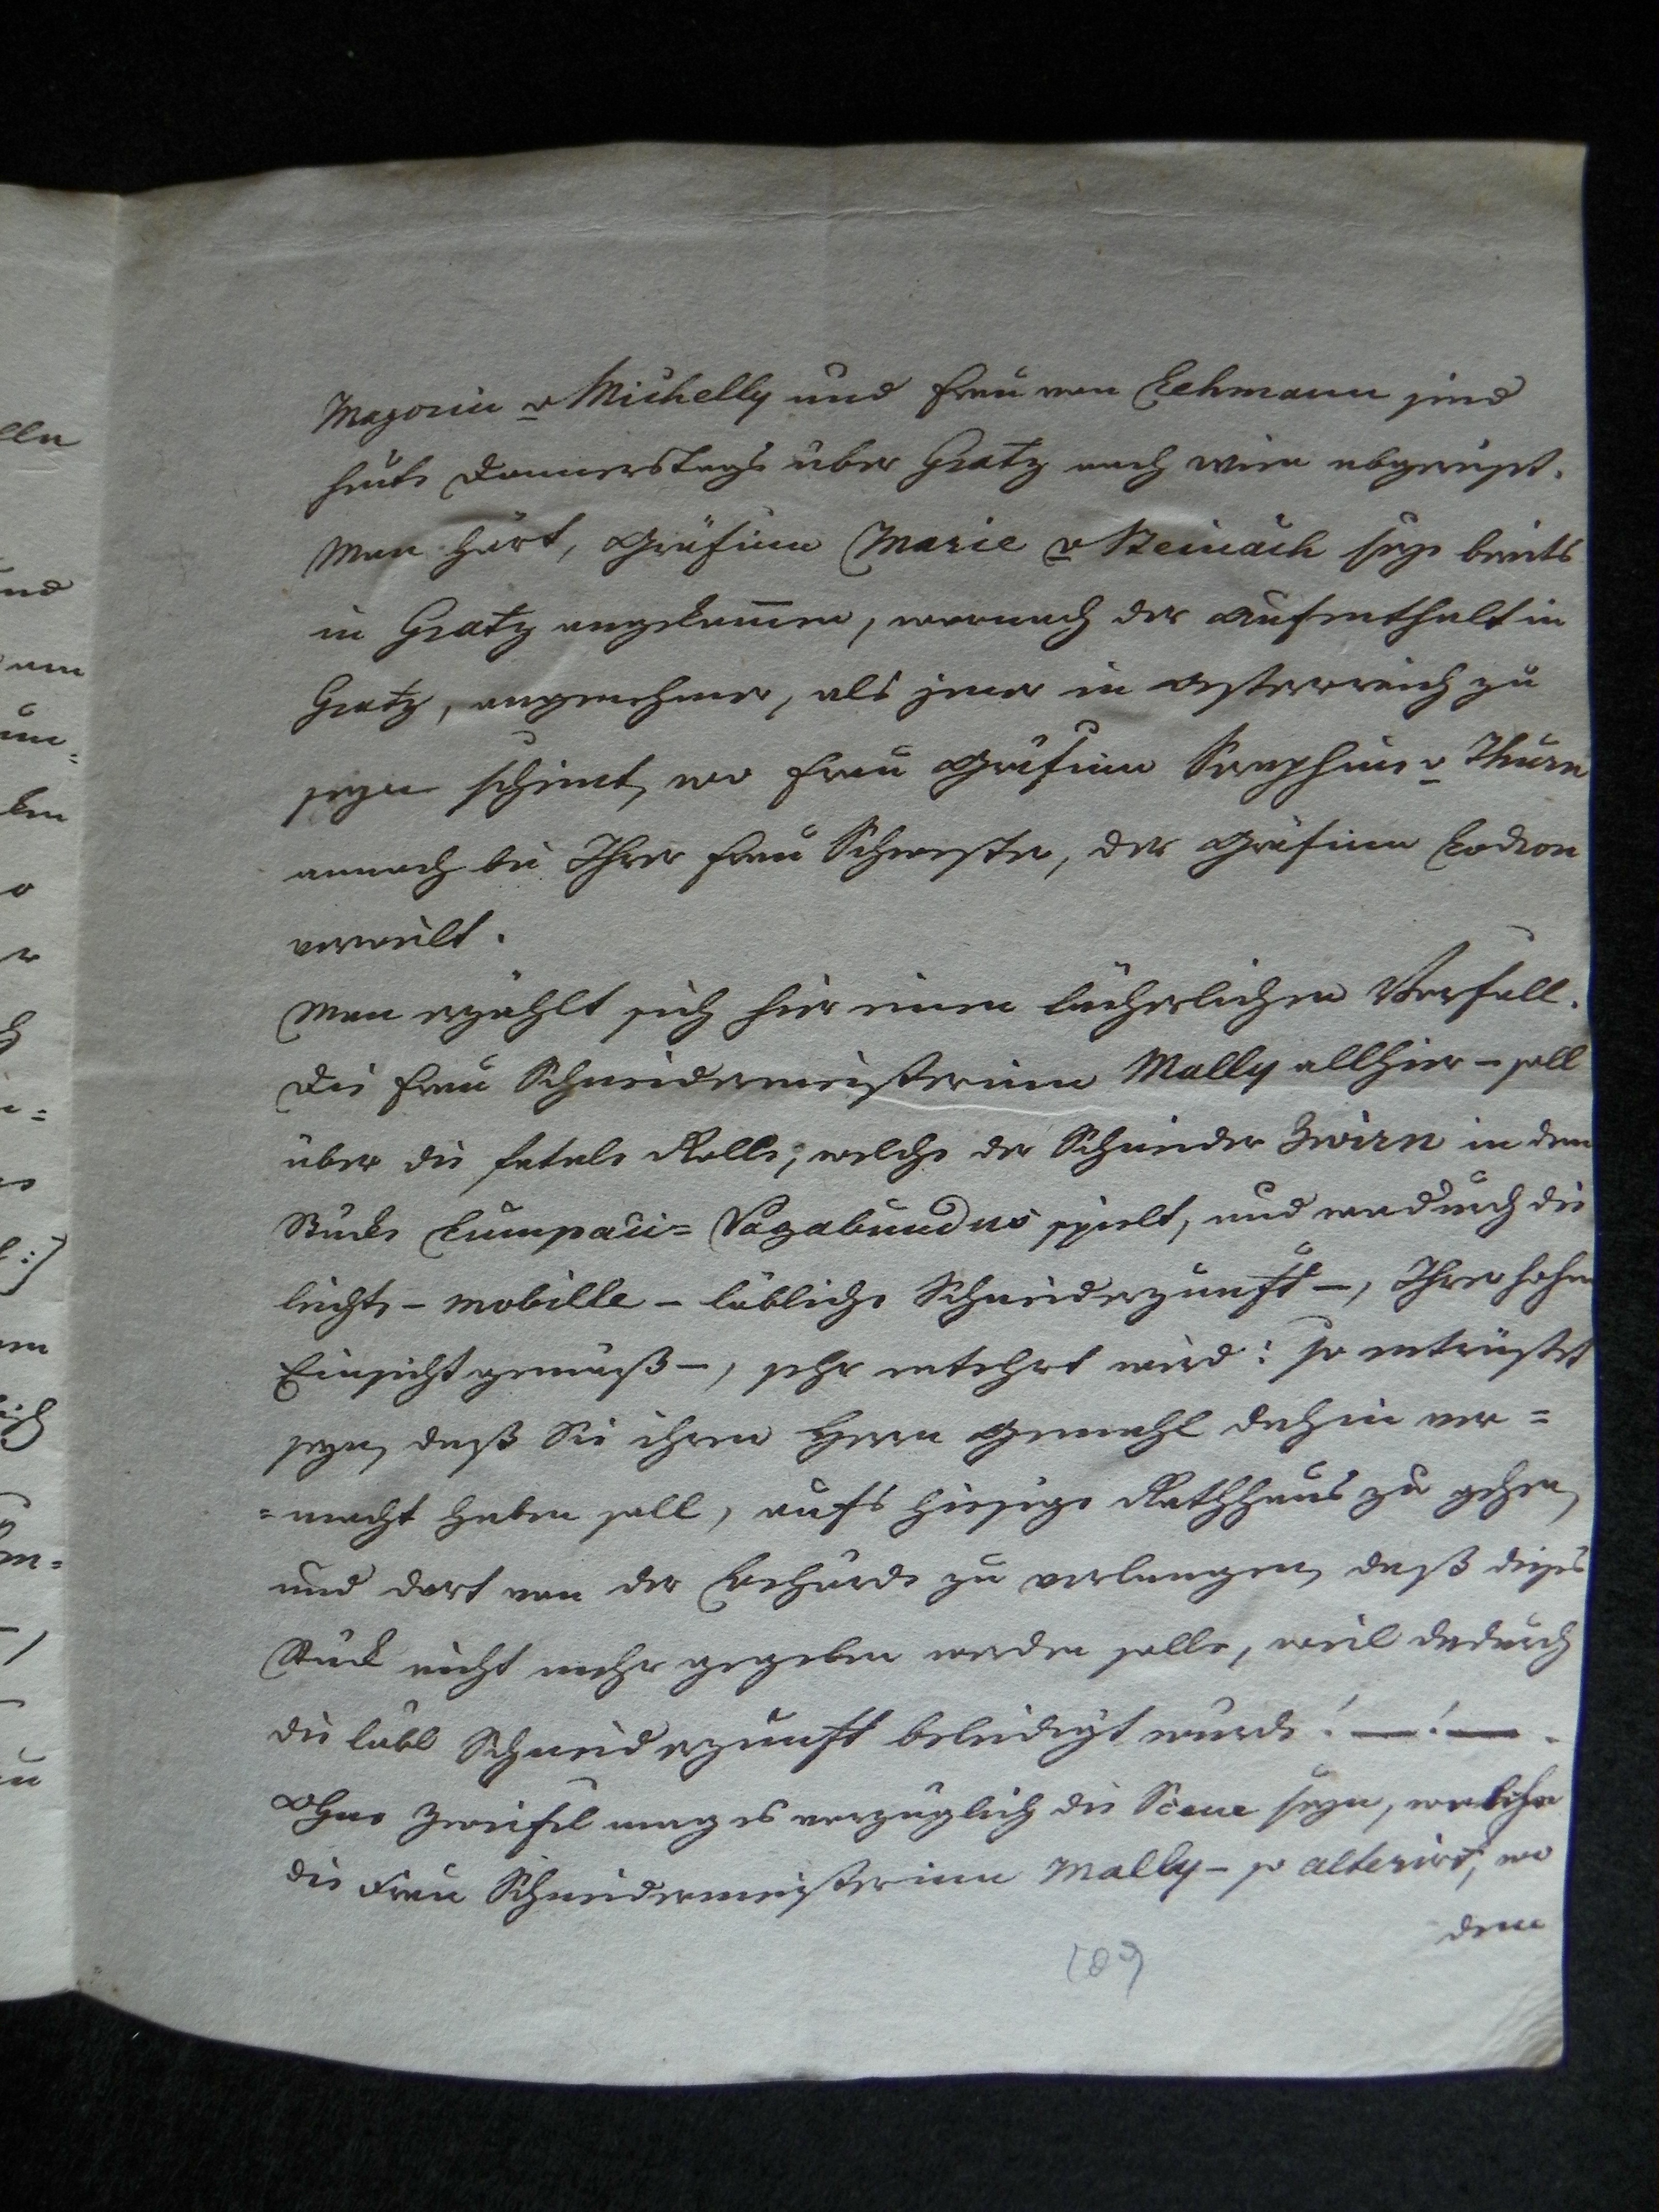 Majorin v Michelly und Frau von Lehmann sind
heute Donnerstags über Gratz nach Wien abgereist.
Man hört, Gräfinn Marie v Steinach seye bereits
in Gratz angekom̄en, wornach der Aufenthalt in
Gratz, angenehmer, als jener in Oesterreich zu
seyn scheint, wo Frau Gräfinn Seraphine v Thurn
annoch bei Ihrer Frau Schwester, der Gräfinn Lodron
verweilt.
Man erzählt sich hier einen lächerlichen Vorfall.
Die Frau Schneidermeisterinn Mally allhier – soll
über die fatale Rolle, welche der Schneider Zwirn in dem
Stücke Lumpaci= Vagabundus spielt, und wodurch die
leichte – mobille – löbliche Schneiderzunft –, Ihrer hohen
Einsicht gemäß –, sehr entehrt wird: so entrüstet
seyn, daß Sie ihren Herrn Gemahl dahin ver=
=macht haben soll, aufs hiesige Rathhaus zu gehen,
und dort von der Behörde zu verlangen, daß dieses
Stück nicht mehr gegeben werden solle, weil dadurch
die löbl Schneiderzunft beleidigt würde! — ! — .
Ohne Zweifel mag es vorzüglich die Scene seyn, welche
die Frau Schneidermeisterinn Mally – so alterirt, wo
dem
109